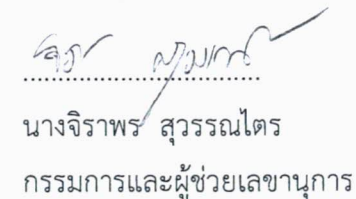 นางจิราพร สุวรรณไตร
กรรมการและผู้ช่วยเลขานุการ